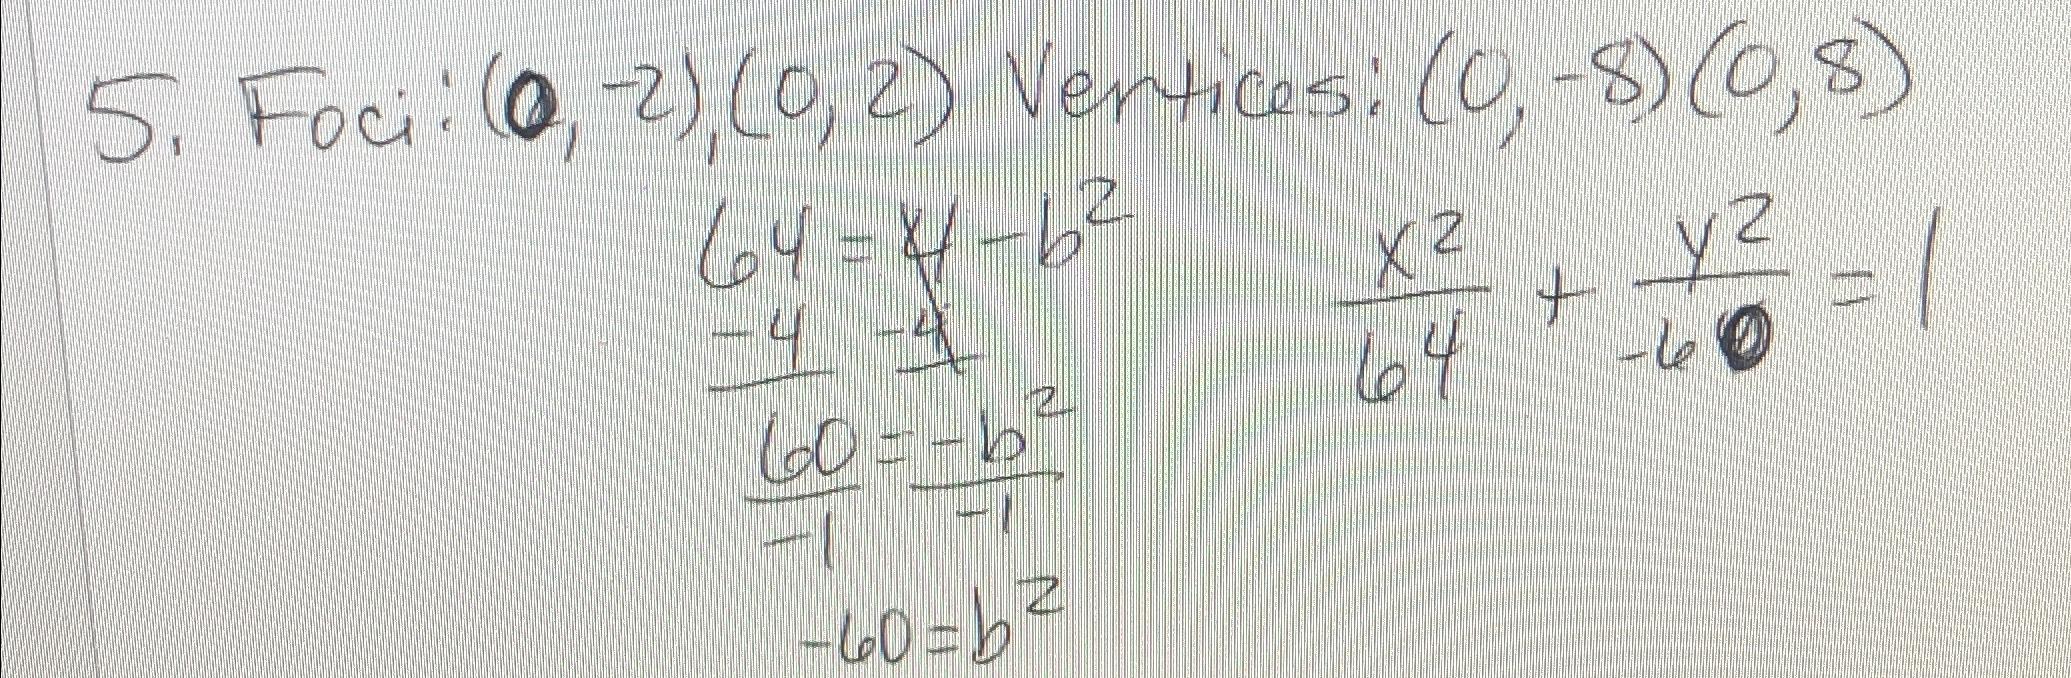 5. Foci: (0, -2), (0, 2) Vertices: (0, -8) (0, 8)
64 = 4 - b²
-4 -4
60 = -b²
-1 -1
-60 = b²
x²/64 + y²/-60 = 1